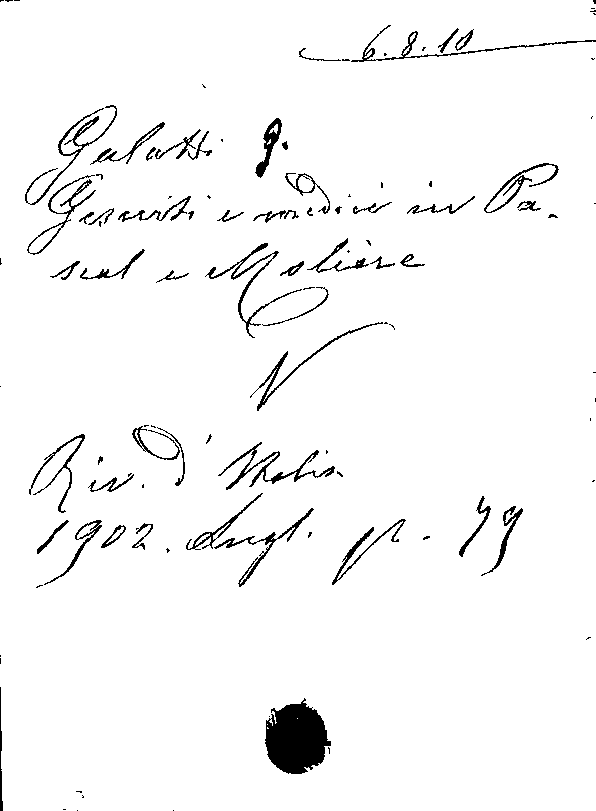 6.8.10
Galatti G.
Gesuiti e medici in Pa-
scal e Molière
V
Riv. d'Italia
1902. Lugl. p. 79